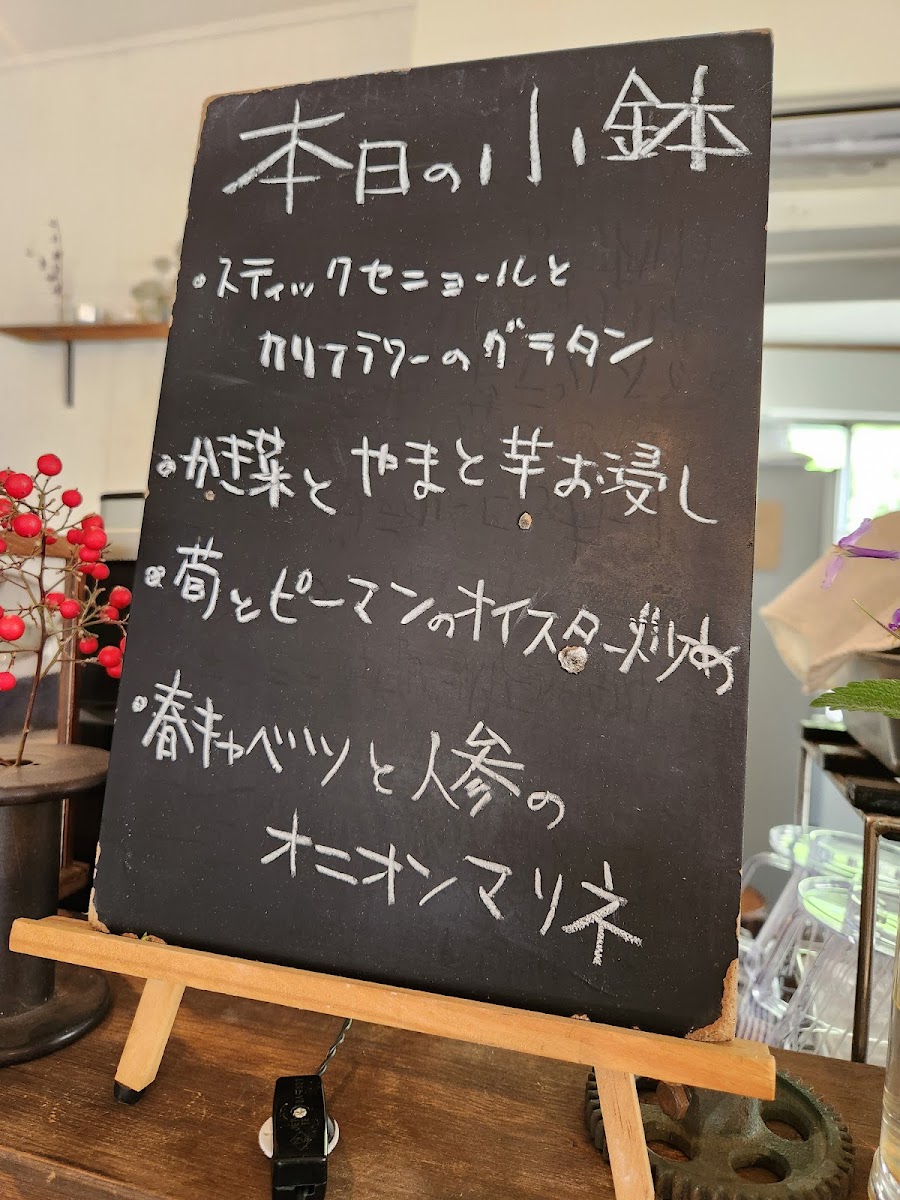 本日の小鉢
・スティックセニョールと
カリフラワーのグラタン
・かき菜とやまと芋お浸し
・筍とピーマンのオイスター炒め
・春キャベツと人参の
オニオンマリネ